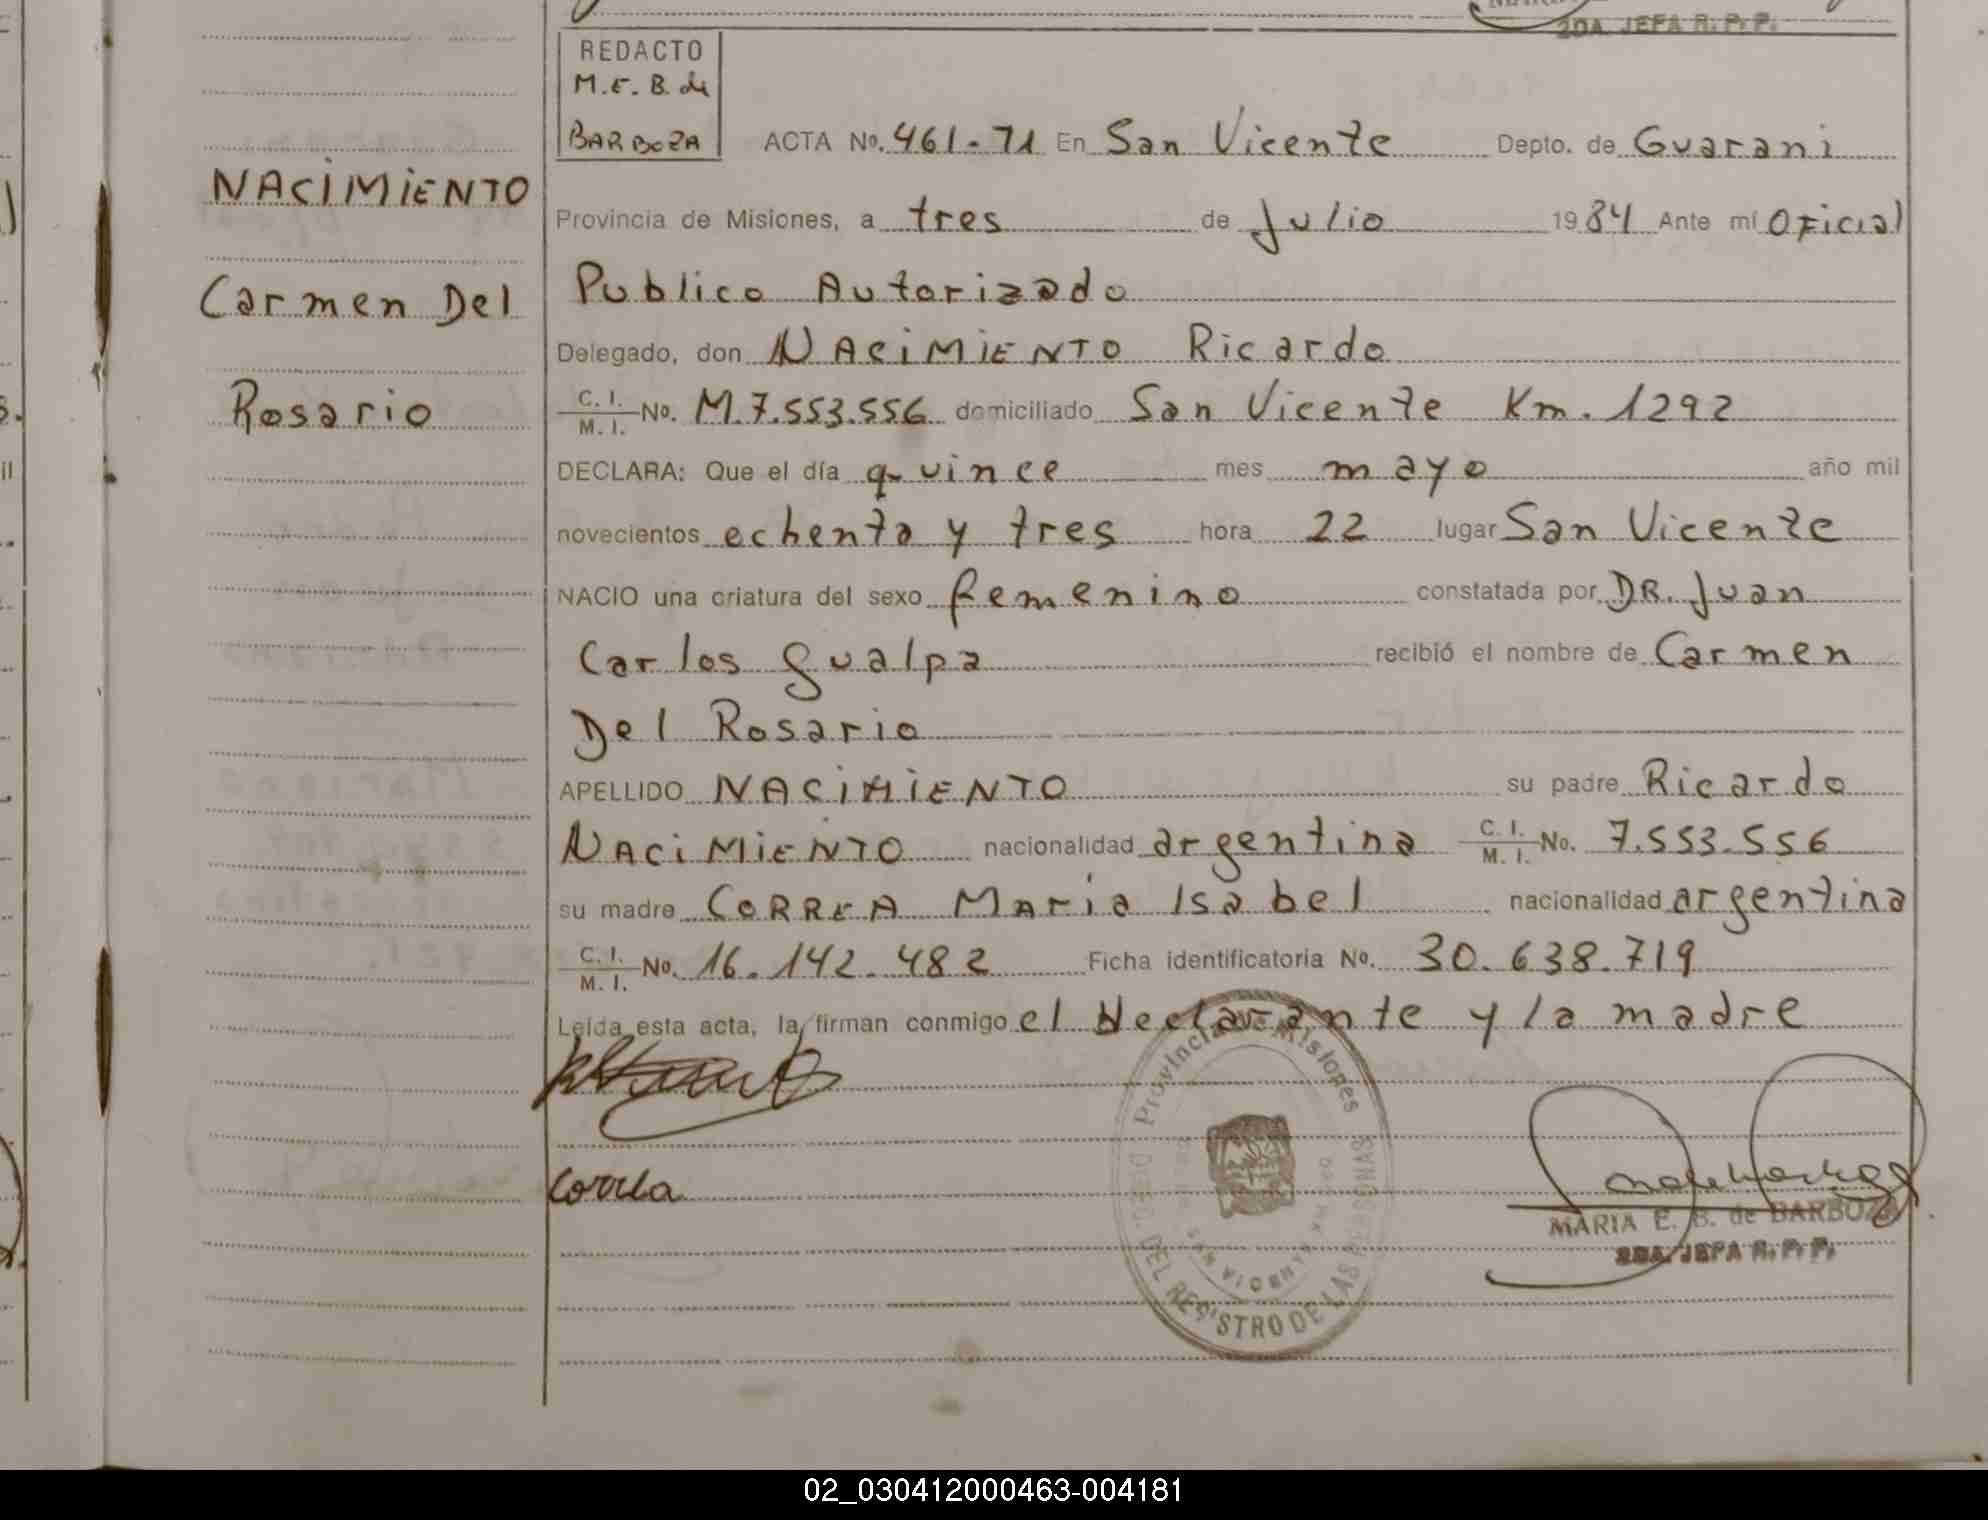 2DA. JEFA R. P. P.
REDACTO
M.E.B. de
BARBOZA
ACTA No. 461-71 En San Vicente Depto. de Guarani
NACIMIENTO
Carmen Del
Rosario
Provincia de Misiones, a tres de Julio 1984 Ante mí Oficial
Publico Autorizado
Delegado, don NACIMIENTO Ricardo
C. I. / M. I. No. M.7.553.556 domiciliado San Vicente Km. 1292
DECLARA: Que el día quince mes mayo año mil
novecientos echenta y tres hora 22 lugar San Vicente
NACIO una criatura del sexo femenino constatada por DR. Juan
Carlos Gualpa recibió el nombre de Carmen
Del Rosario
APELLIDO NACIMIENTO su padre Ricardo
NACIMIENTO nacionalidad argentina C. I. / M. I. No. 7.553.556
su madre CORREA Maria Isabel nacionalidad argentina
C. I. / M. I. No. 16.142.482 Ficha identificatoria No. 30.638.719
Leída esta acta, la firman conmigo el declarante y la madre
Provincia de Misiones
DEL REGISTRO DE LAS PERSONAS
Correa
MARIA E. B. de BARBOZA
2DA. JEFA R. P. P.
02_030412000463-004181